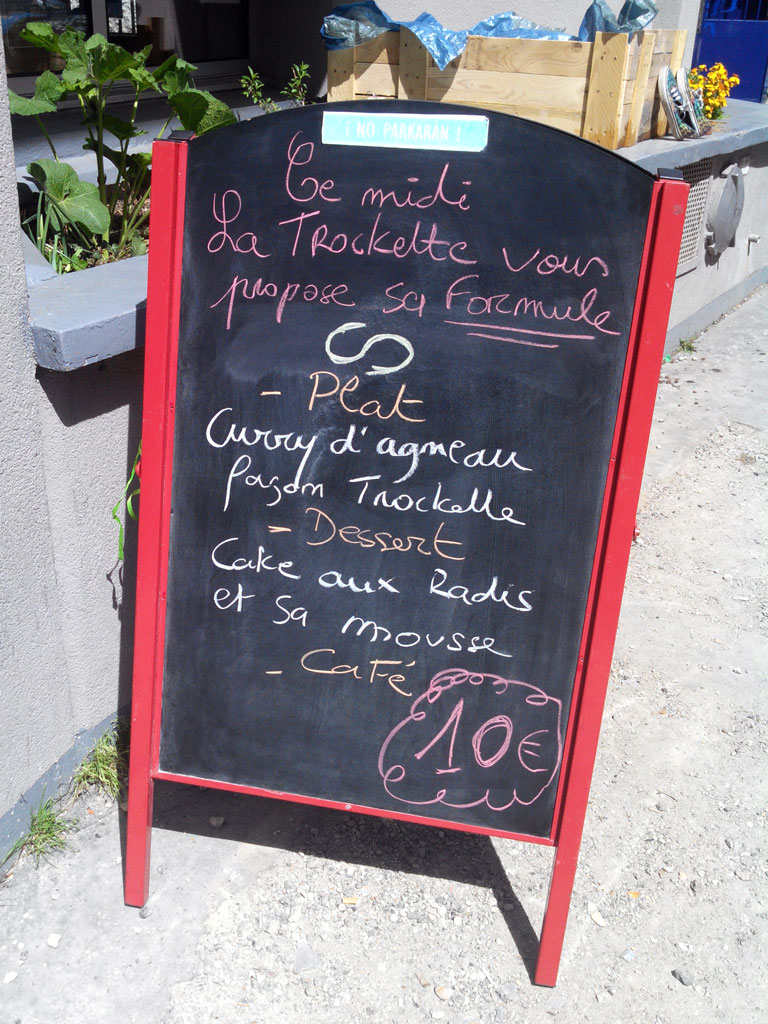 ¡ NO PARKARAN !
Ce midi
La Trockette vous
propose sa Formule
- Plat
Curry d'agneau
façon Trockette
- Dessert
Cake aux Radis
et sa mousse
- Café
10€